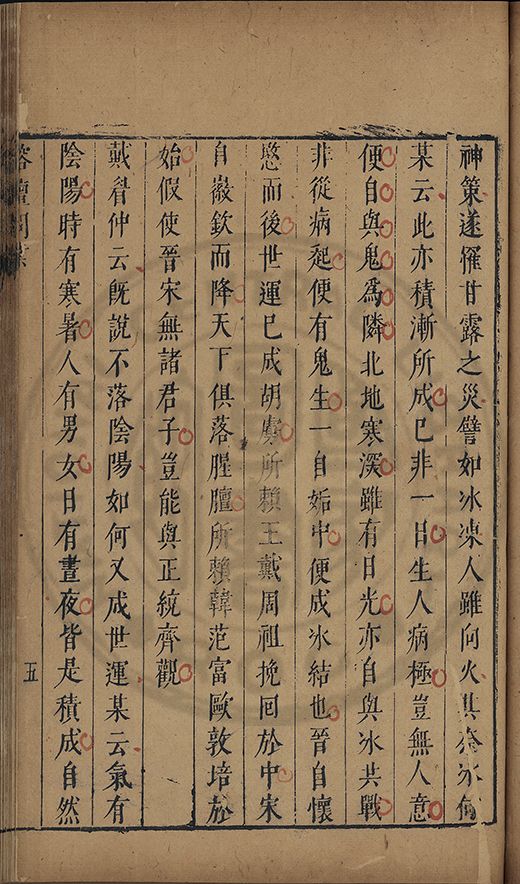 神策遂罹甘露之災譬如冰凍人雖向火其奈冰何
某云此亦積漸所成已非一日生人病極豈無人意
便自與鬼為隣北地寒深雖有日光亦自與冰共戰
非從病起便有鬼生一自姤中便成冰結也晉自懷
愍而後世運已成胡虜所賴王戴周祖挽回於中宋
自徽欽而降天下俱落腥膻所賴韓范富歐敦培於
始假使晉宋無諸君子豈能與正統齊觀
戴肙仲云既說不落陰陽如何又成世運某云氣有
陰陽時有寒暑人有男女日有晝夜皆是積成自然
榕壇問業
五